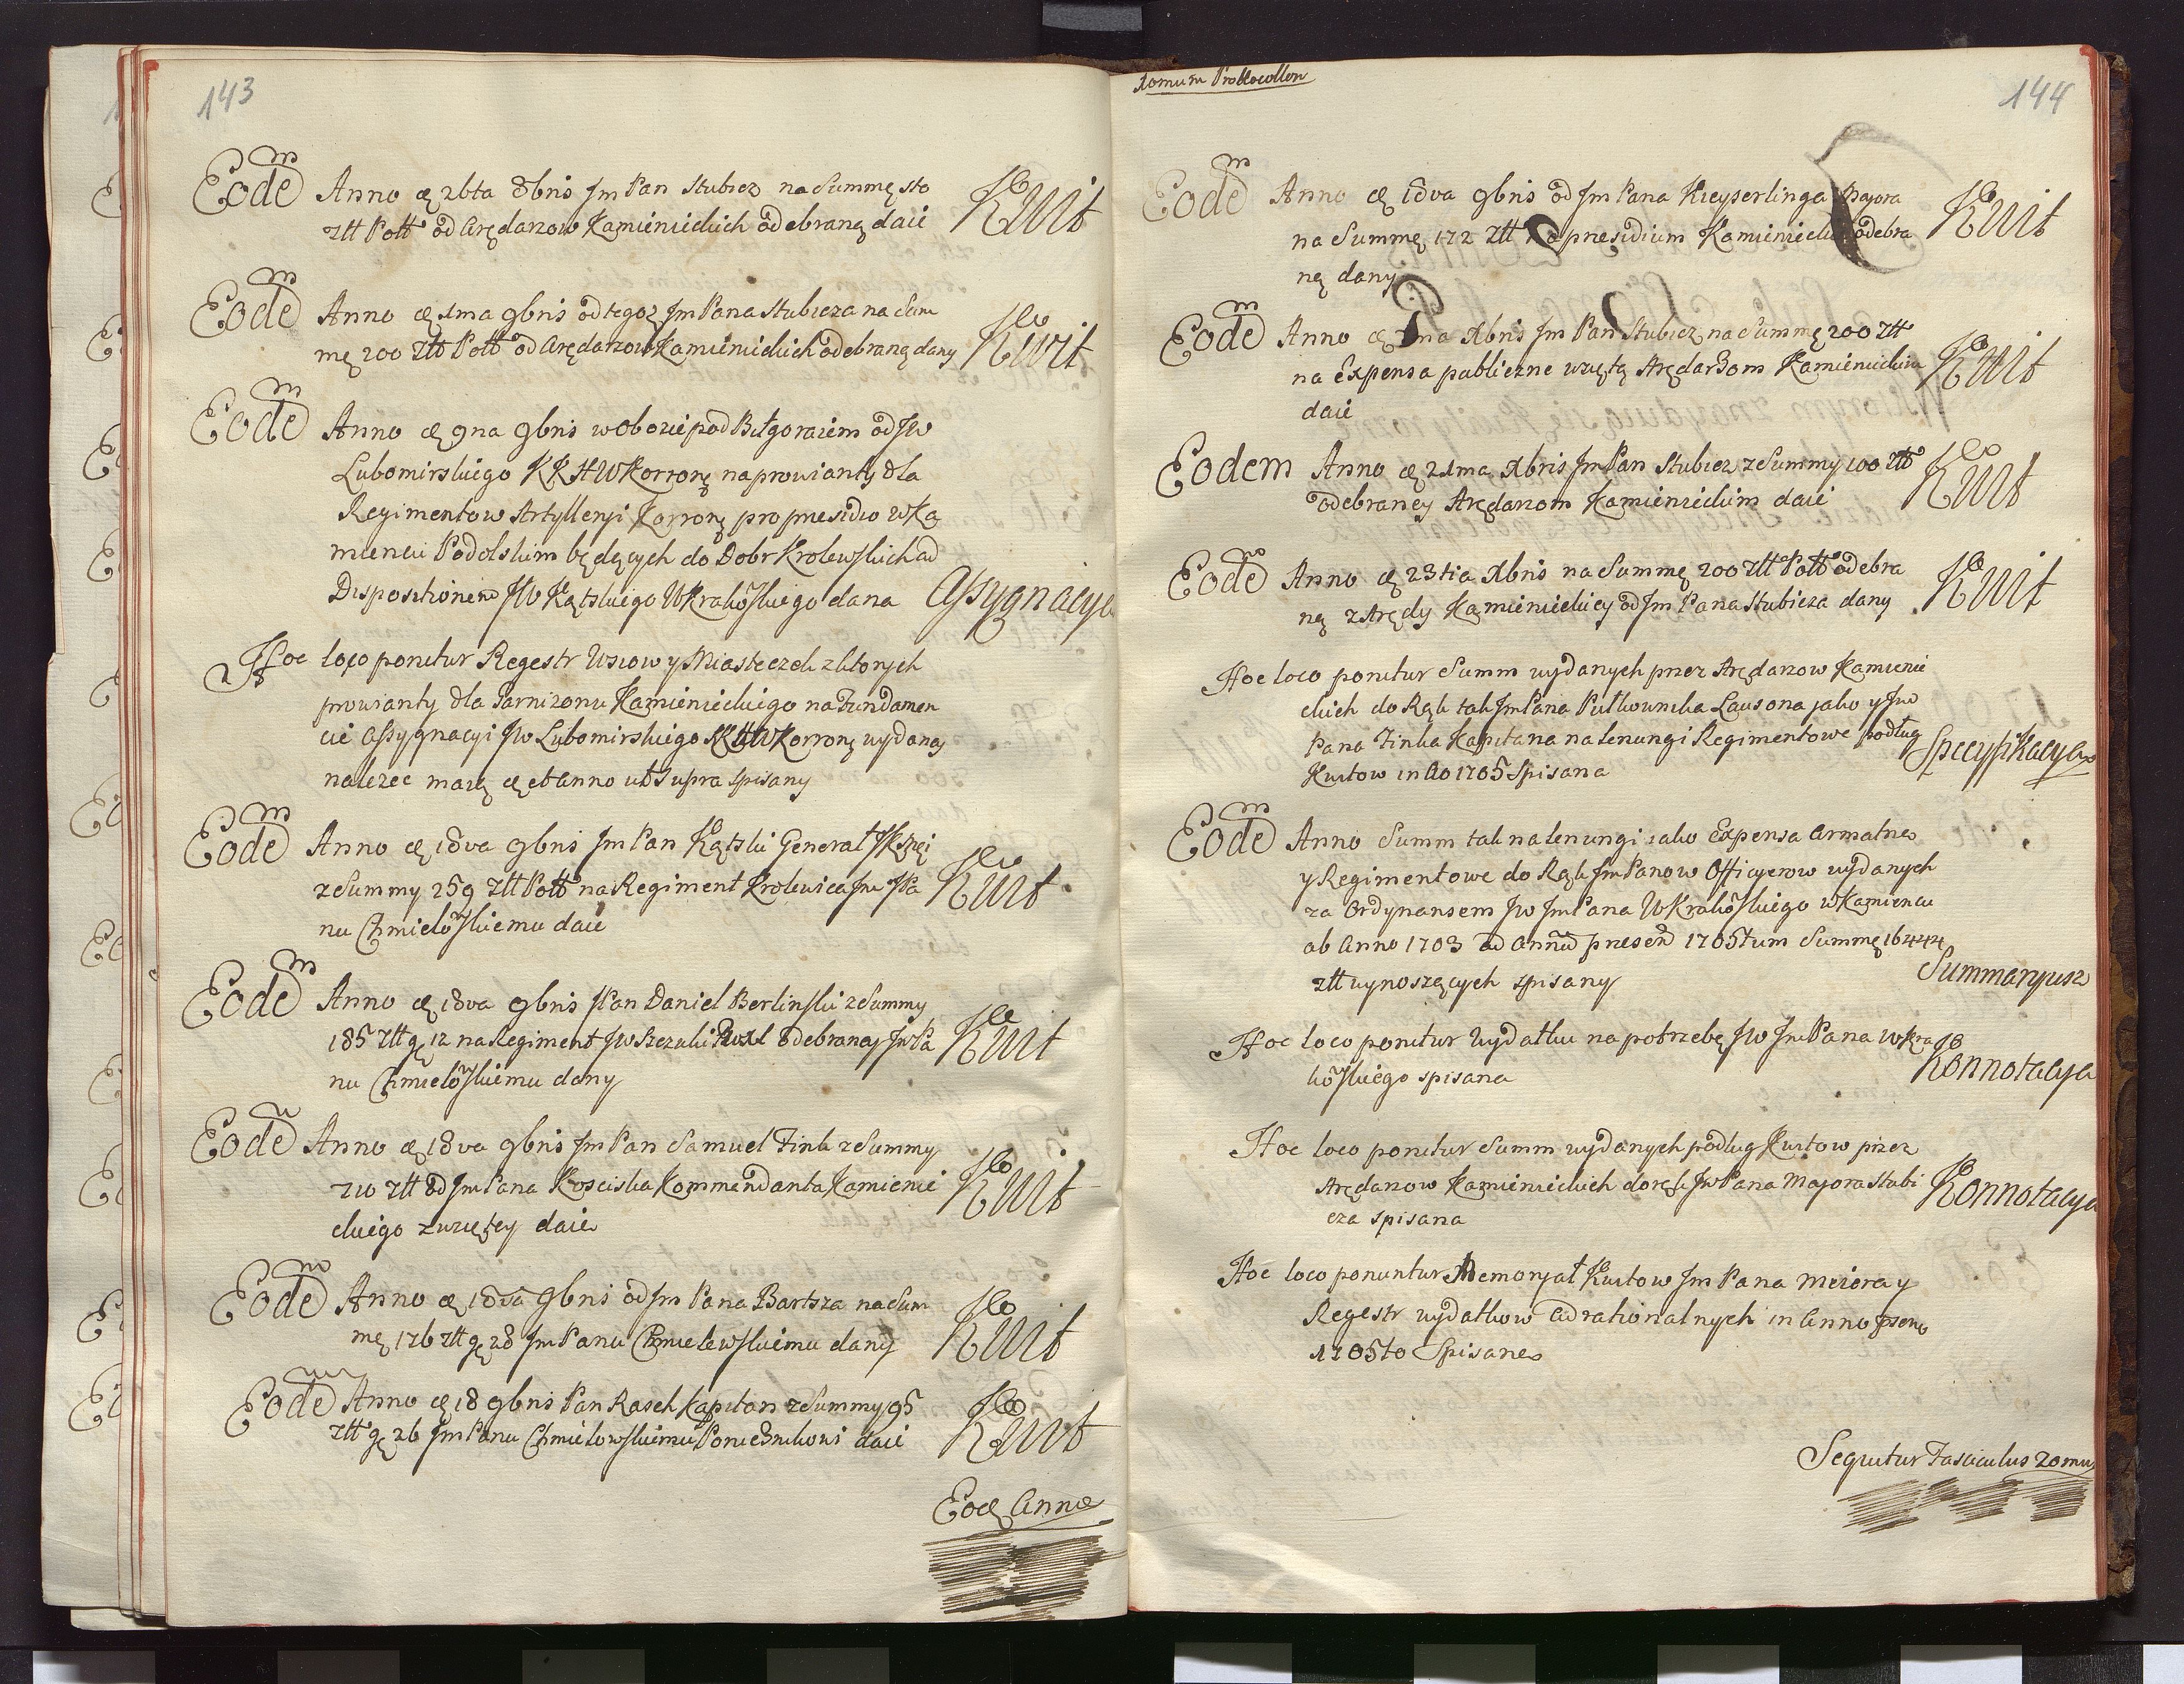 143
Eodem Anno d 26ta 8bris Jm Pan Stubicz na Summę sto
złł Poll od Arędarzow Kamienieckich odebraną daie Kwit
Eodem Anno d 1ma 9bris od tegoz Jm Pana Stubicza na Sum
mę 200 Złł Poll od Arędarzow Kamienieckich odebraną dany Kwit
Eodem Anno d 9na 9bris w obozie pod Biłgoraiem od JW
Lubomirskiego KKHWKorronę na prowianty dla
Regimentow Artylleryi Korronę pro presidio w Ka
miencu Podolskim będących do Dobr Krolewskich ad
Dispositionem JW Kątskiego WKrakowskiego dana Assygnacya
Hoc loco ponitur Regestr Wsiow y Miasteczek z ktorych
prowianty dla Garnizonu Kamienieckiego na Fundamen
cie Assygnacyi JW Lubomirskiego KKHWKorronę wydaney
nalezec maią d et anno ut supra spisany
Eodem Anno d 18va 9bris Jm Pan Kątski Generał
z Summy 259 Złł Poll na Regiment Krolewica Jm Pa
nu Chmielowskiemu daie Kwit
Eodem Anno d 18va 9bris Pan Daniel Berlinski z Summy
185 Złł g 12 na Regiment JW Rzezuski odebraney Jm Pa
nu Chmielowskiemu dany Kwit
Eodem Anno d 18va 9bris Jm Pan Samuel Fink z Summy
210 złł od Jm Pana Koscieska Kommendanta Kamienie
ckiego wziętey daie Kwit
Eodem Anno d 18va 9bris od Jm Pana Bartsza na Sum
mę 176 złł g 28 Jm Panu Chmielewskiemu dany Kwit
Eodem Anno d 18 9bris Pan Rasch Kapitan z Summy 95
Złł g 26 Jm Panu Chmielowskiemu daie Kwit
Eod Anno
Protocollon
144
Eodem Anno d 18va 9bris od Jm Pana Kieyserlinga Majora
na Summę 172 Złł na presidium Kamienieckie odebra
ną dany Kwit
Eodem Anno d 1ma Xbris Jm Pan Stubicz na Summę 200 Złł
na Expensa publiczne wziętą Arędarzom Kamienieckim
daie Kwit
Eodem Anno d 21ma Xbris Jm Pan Stubicz z Summy 100 Złł
odebraney Arędarzom Kamienieckim daie Kwit
Eodem Anno d 23tia Xbris na Summę 200 Złł Poll odebra
ną z Arędy Kamienieckiey od Jm Pana Stubicza dany Kwit
Hoc loco ponitur Summ wydanych przez Arędarzow Kamienie
ckich do Rąk tak Jm Pana Pułkownika Lausona jako y Jm
Pana Finka Kapitana na lenungi Regimentowe podług
Kwitow in Ao 1705 Spisana Specyfikacya
Eodem Anno Summ tak na lenungi iako Expensa Armatne
y Regimentowe do Rąk Jm Panow Officyerow wydanych
za Ordynansem JW Jm Pana WKrakowskiego w Kamiencu
ab Anno 1703 ad Annum presen 1705tum Summę 16444
złł wynoszących spisany Summaryusz
Hoc loco ponitur wydatku na potrzebę JW Jm Pana WKra
kowskiego spisana Konnotacya
Hoc loco ponitur Summ wydanych podług Kwitow przez
Arędarzow Kamienieckich do rąk Jm Pana Majora Stubi
cza spisana Konnotacya
Hoc loco ponuntur Memoryał Kwitow Jm Pana Meiora y
Regestr wydatkow adrationalnych in Anno
1705to Spisane
Sequitur Fasciculus 20mu